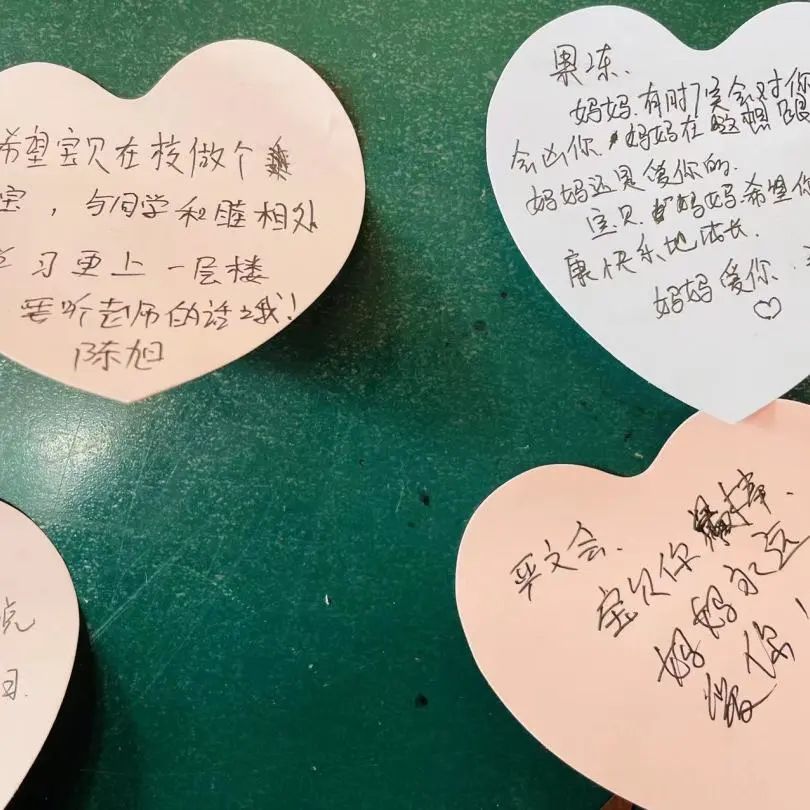 希望宝贝在校做个乖
宝，与同学和睦相处
学习更上一层楼
要听老师的话哦!
陈旭
果冻、
妈妈有时7实会对你
会凶你 妈妈在这想跟
妈妈还是爱你的
宝贝 妈妈希望你
康快乐地成长.
妈妈爱你
严文会、
宝贝你 棒.
妈妈永远
爱你!
日.